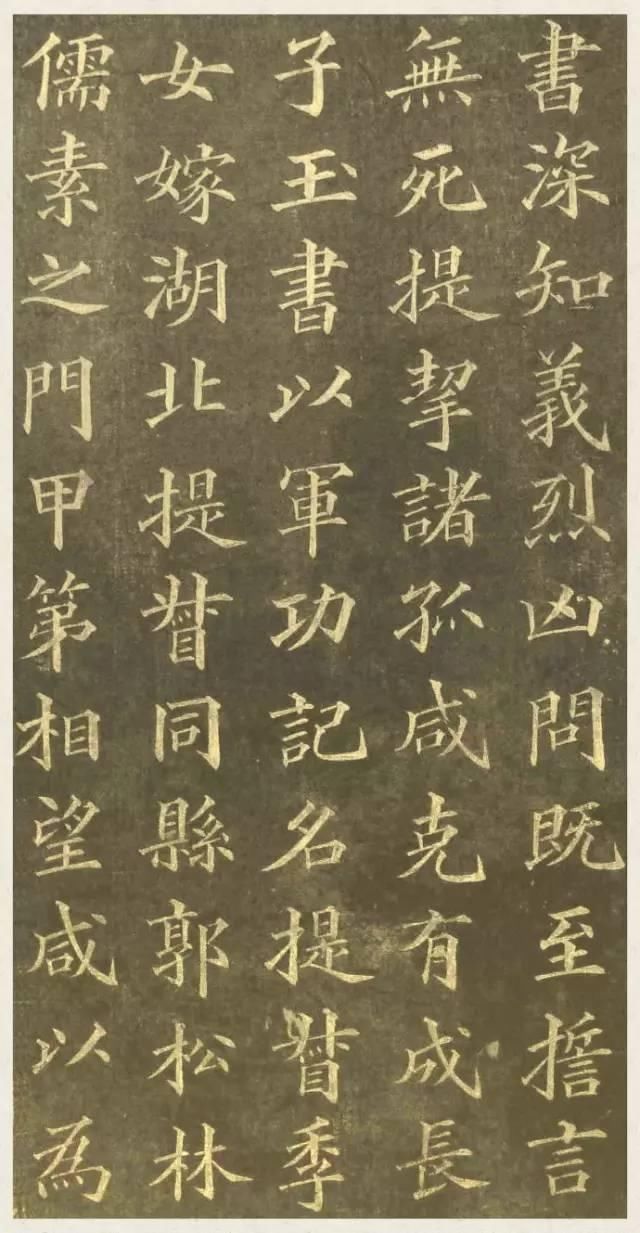 書深知義烈凶問既至擔言
無死提挈諸孤咸克有成長
子玉書以軍功記名提督季
女嫁湖北提督同縣郭松林
儒素之門甲第相望咸以為